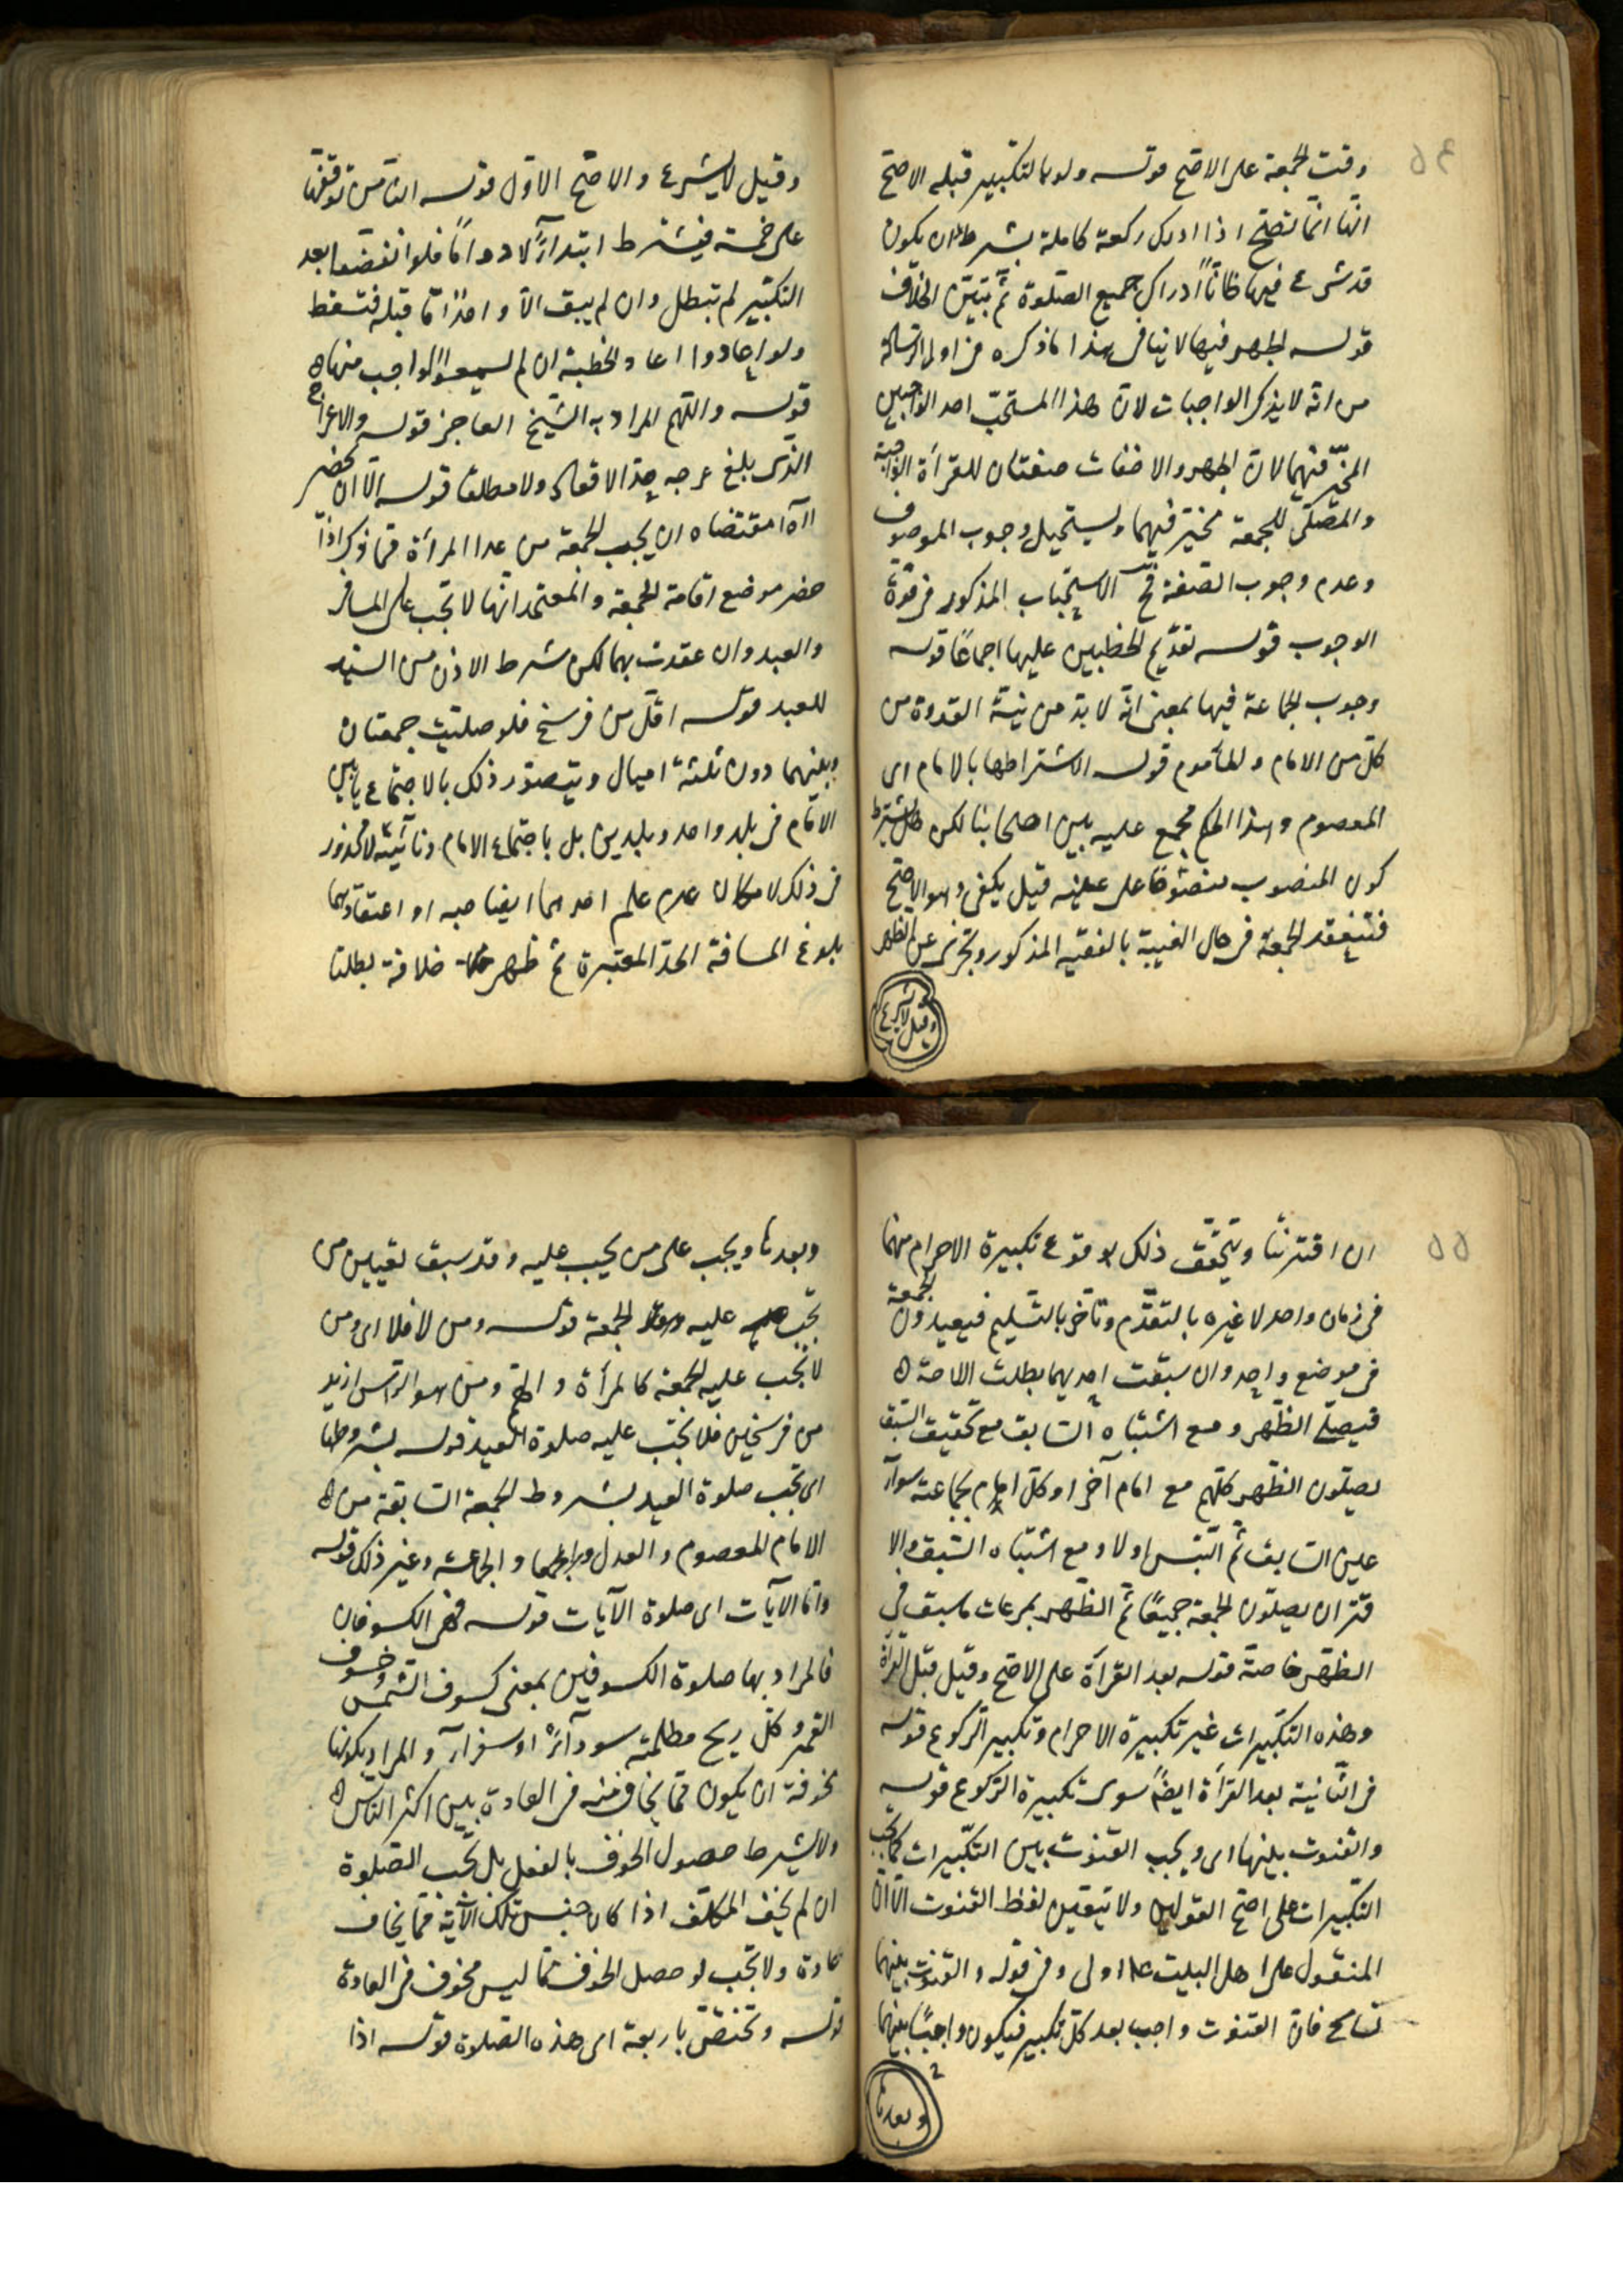 ٥٤
وقت الجمعة على الاصح قوله ولو بالتكبير قبله الاصح
انها انما تصح اذا ادرك ركعة كاملة بشرط ان يكون
قد شرع فيها ظانا ادراك جميع الصلوة ثم تبين الخلاف
قوله الجهر فيها لا ينافى هذا ما ذكره فى اول الرسالة
من انه لا يذكر الواجبات لان هذا المستحب احد الواجبين
المخير فيهما لان الجهر والاخفات صفتان للقرأة الواجبة
والمصلى للجمعة مخير فيهما ويستحيل وجوب الموصوف
وعدم وجوب الصفة فح الاستحباب المذكور فى قوة
الوجوب قوله تقديم الخطبتين عليها اجماعا قوله
وجوب الجماعة فيها بمعنى انه لا بد من نية القدوة من
كل من الامام والمأموم قوله الاشتراطها بالامام اى
المعصوم وهذا الحكم مجمع عليه بين اصحابنا لكن هل يشترط
كون المنصوب منصوصا على عينه قيل يكفى وهو الاصح
فتنعقد الجمعة فى حال الغيبة بالفقيه المذكور وتجزى عن الظهر
وقيل لا يشرع
وقيل لا يشرع والاصح الاول قوله الثامن توقفها
على خمسة فيشترط ابتداءً لا دواماً فلو انفضوا بعد
التكبير لم تبطل وان لم يبق الا واحد اما قبله فتسقط
ولو عادوا اعاد الخطبة ان لم يسمعوا الواجب منها
قوله والهم المراد به الشيخ العاجز قوله والاعرج
الذى بلغ عرجه حد الاقعاد ولا مطلقا قوله الا ان يحضر
اه مقتضاه ان يجب الجمعة من عدا المرأة مما ذكر اذا
حضر موضع اقامة الجمعة والمعتمد انها لا تجب على المسافر
والعبد وان عقدت بهما لكن بشرط الاذن من السيد
للعبد قوله اقل من فرسخ فلو صليت جمعتان
وبينهما دون ثلثة اميال ويتصور ذلك بالاجتماع بنايبى
الامام فى بلد واحد وبلدين بل باجتماع الامام ونائبه لا محذور
فى ذلك لامكان عدم علم احدهما ايضا صبه او اعتقادهما
بلوغ المسافة الحد المعتبرة ثم ظهر خلافه بطلتا
٥٥
ان اقترنتا ويتحقق ذلك بوقوع تكبيرة الاحرام منهما
فى زمان واحد لا غيره بالتقدم وتأخر بالتسليم فيعيدون الجمعة
فى موضع واحد وان سبقت احديهما بطلت اللاحقة
فيصلى الظهر ومع اشتباه السابق مع تحقيق السبق
يصلون الظهر كلهم مع امام آخر او كل امام بجماعته سواء
علين السابق ثم التبس اولا ومع اشتباه السبق والا
قتران يصلون الجمعة جميعًا ثم الظهر بمرعات ما سبق فى
الظهر خاصة قوله بعد القرأة على الاصح وقيل قبل القرأة
وهذه التكبيرات غير تكبيرة الاحرام وتكبير الركوع قوله
فى الثانية بعد القرأة ايضا سوى تكبيرة الركوع قوله
والقنوت بينها اى ويجب القنوت بين التكبيرات كما يجب
التكبيرات على اصح القولين ولا يتعين لفظ القنوت الا ان
المنقول على اهل البيت ع اولى وفى قوله والقنوت بينهما
تسامح فان القنوت واجب بعد كل تكبير فيكون واجبًا بينهما
وبعدها
وبعدها ويجب على من يجب عليه وقد سبق تعيين من
تجب عليه الجمعة قوله ومن لا فلا اى ومن
لا تجب عليه الجمعة كالمرأة والهم ومن هو الراس ازيد
من فرسخين فلا تجب عليه صلوة العيد قوله بشروطها
اى تجب صلوة العيد بشروط الجمعة السابقة من
الامام المعصوم والعدل والجماعة وغير ذلك قوله
واما الآيات اى صلوة الآيات قوله فهى الكسوفان
فالمراد بها صلوة الكسوفين بمعنى كسوف الشمس وخسوف
القمر وكل ريح مظلمة سوداء او صفراء والمراد بكونها
مخوفة ان يكون مما يخاف منه فى العادة بين اكثر الناس
ولا يشترط حصول الخوف بالفعل بل تجب الصلوة
ان لم يخف المكلف اذا كان جنس تلك الآية مما يخاف
عادة ولا تجب لو حصل الخوف مما ليس مخوف فى العادة
قوله وتختص باربعة اى هذه الصلوة قوله اذا